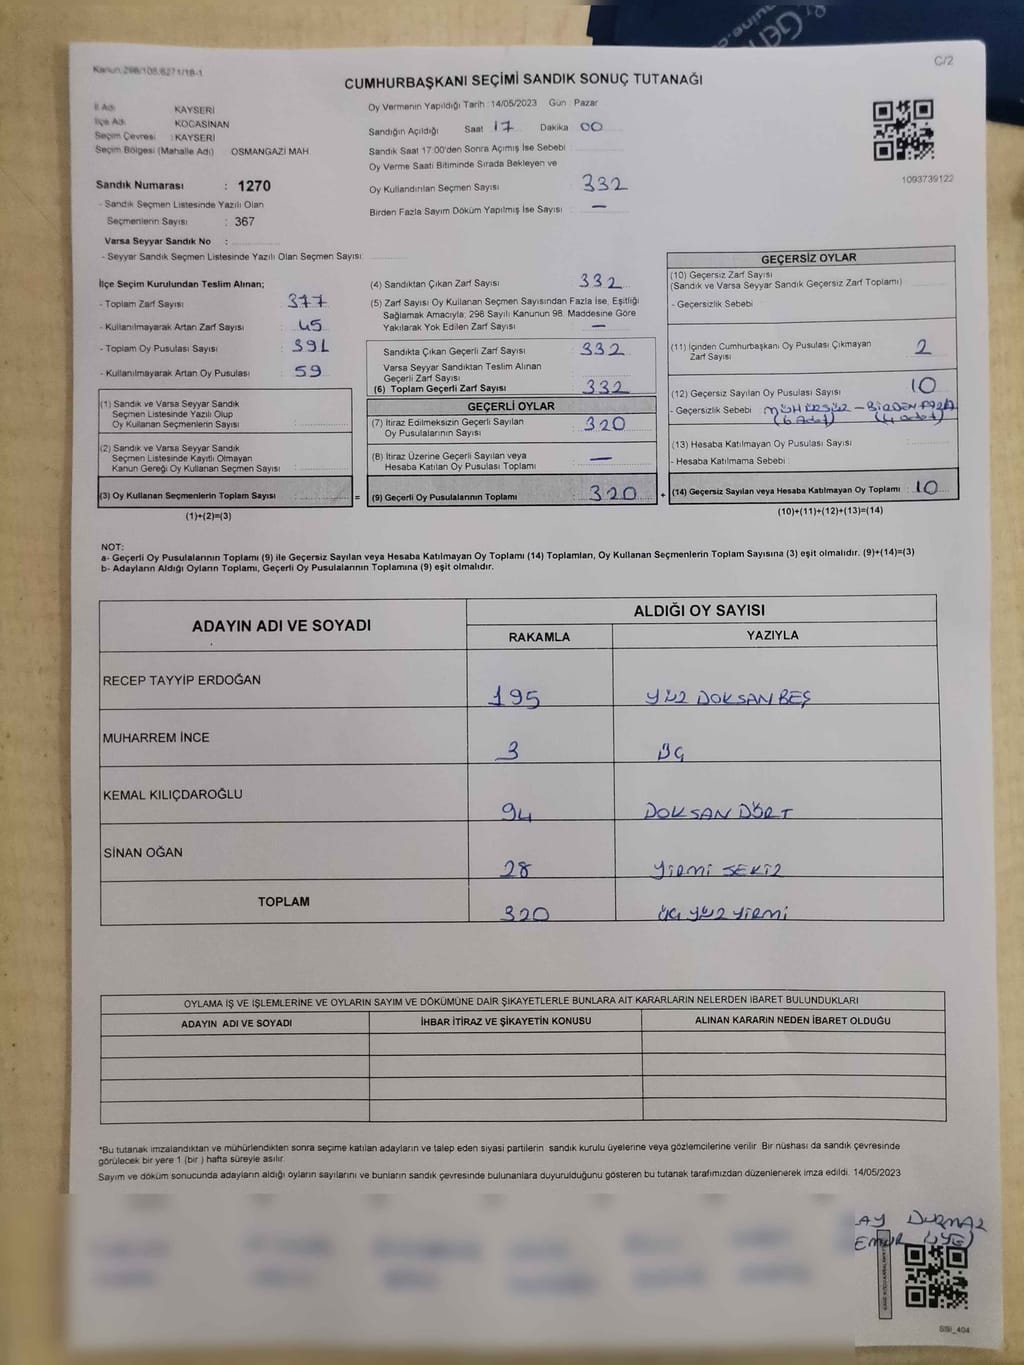 Kanun:298/105/6271/18-1
C/2
CUMHURBAŞKANI SEÇİMİ SANDIK SONUÇ TUTANAĞI
İl Adı KAYSERİ
İlçe Adı KOCASİNAN
Seçim Çevresi : KAYSERİ
Seçim Bölgesi (Mahalle Adı) OSMANGAZİ MAH.
Sandık Numarası : 1270
- Sandık Seçmen Listesinde Yazılı Olan
Seçmenlerin Sayısı : 367
Varsa Seyyar Sandık No :
- Seyyar Sandık Seçmen Listesinde Yazılı Olan Seçmen Sayısı:
Oy Vermenin Yapıldığı Tarih : 14/05/2023 Gün : Pazar
Sandığın Açıldığı Saat 17 Dakika 00
Sandık Saat 17:00'den Sonra Açımış İse Sebebi :
Oy Verme Saati Bitiminde Sırada Bekleyen ve
Oy Kullandırılan Seçmen Sayısı : 332
Birden Fazla Sayım Döküm Yapılmış İse Sayısı : —
1093739122
İlçe Seçim Kurulundan Teslim Alınan;
- Toplam Zarf Sayısı : 377
- Kullanılmayarak Artan Zarf Sayısı : 45
- Toplam Oy Pusulası Sayısı : 391
- Kullanılmayarak Artan Oy Pusulası : 59
(1) Sandık ve Varsa Seyyar Sandık
Seçmen Listesinde Yazılı Olup
Oy Kullanan Seçmenlerin Sayısı :
(2) Sandık ve Varsa Seyyar Sandık
Seçmen Listesinde Kayıtlı Olmayan
Kanun Gereği Oy Kullanan Seçmen Sayısı :
(3) Oy Kullanan Seçmenlerin Toplam Sayısı :
(1)+(2)=(3)
=
(4) Sandıktan Çıkan Zarf Sayısı : 332
(5) Zarf Sayısı Oy Kullanan Seçmen Sayısından Fazla İse, Eşitliği
Sağlamak Amacıyla; 298 Sayılı Kanunun 98. Maddesine Göre
Yakılarak Yok Edilen Zarf Sayısı : —
Sandıkta Çıkan Geçerli Zarf Sayısı : 332
Varsa Seyyar Sandıktan Teslim Alınan
Geçerli Zarf Sayısı :
(6) Toplam Geçerli Zarf Sayısı : 332
GEÇERLİ OYLAR
(7) İtiraz Edilmeksizin Geçerli Sayılan
Oy Pusulalarının Sayısı : 320
(8) İtiraz Üzerine Geçerli Sayılan veya
Hesaba Katılan Oy Pusulası Toplamı : —
(9) Geçerli Oy Pusulalarının Toplamı : 320
+
GEÇERSİZ OYLAR
(10) Geçersiz Zarf Sayısı
(Sandık ve Varsa Seyyar Sandık Geçersiz Zarf Toplamı) :
- Geçersizlik Sebebi :
(11) İçinden Cumhurbaşkanı Oy Pusulası Çıkmayan
Zarf Sayısı : 2
(12) Geçersiz Sayılan Oy Pusulası Sayısı : 10
- Geçersizlik Sebebi : MÜHÜRSÜZ – BİRDEN FAZLA
(6 Adet) (4 adet)
(13) Hesaba Katılmayan Oy Pusulası Sayısı :
- Hesaba Katılmama Sebebi :
(14) Geçersiz Sayılan veya Hesaba Katılmayan Oy Toplamı : 10
(10)+(11)+(12)+(13)=(14)
NOT:
a- Geçerli Oy Pusulalarının Toplamı (9) ile Geçersiz Sayılan veya Hesaba Katılmayan Oy Toplamı (14) Toplamları, Oy Kullanan Seçmenlerin Toplam Sayısına (3) eşit olmalıdır. (9)+(14)=(3)
b- Adayların Aldığı Oyların Toplamı, Geçerli Oy Pusulalarının Toplamına (9) eşit olmalıdır.
ADAYIN ADI VE SOYADI
ALDIĞI OY SAYISI
RAKAMLA YAZIYLA
RECEP TAYYİP ERDOĞAN 195 YÜZ DOKSAN BEŞ
MUHARREM İNCE 3 ÜÇ
KEMAL KILIÇDAROĞLU 94 DOKSAN DÖRT
SİNAN OĞAN 28 YİRMİ SEKİZ
TOPLAM 320 ÜÇ YÜZ YİRMİ
OYLAMA İŞ VE İŞLEMLERİNE VE OYLARIN SAYIM VE DÖKÜMÜNE DAİR ŞİKAYETLERLE BUNLARA AİT KARARLARIN NELERDEN İBARET BULUNDUKLARI
ADAYIN ADI VE SOYADI İHBAR İTİRAZ VE ŞİKAYETİN KONUSU ALINAN KARARIN NEDEN İBARET OLDUĞU
*Bu tutanak imzalandıktan ve mühürlendikten sonra seçime katılan adayların ve talep eden siyasi partilerin sandık kurulu üyelerine veya gözlemcilerine verilir. Bir nüshası da sandık çevresinde
görülecek bir yere 1 (bir ) hafta süreyle asılır.
Sayım ve döküm sonucunda adayların aldığı oyların sayılarını ve bunların sandık çevresinde bulunanlara duyurulduğunu gösteren bu tutanak tarafımızdan düzenlenerek imza edildi. 14/05/2023
AY DURMAZ
(ÜYE)
SSI_404